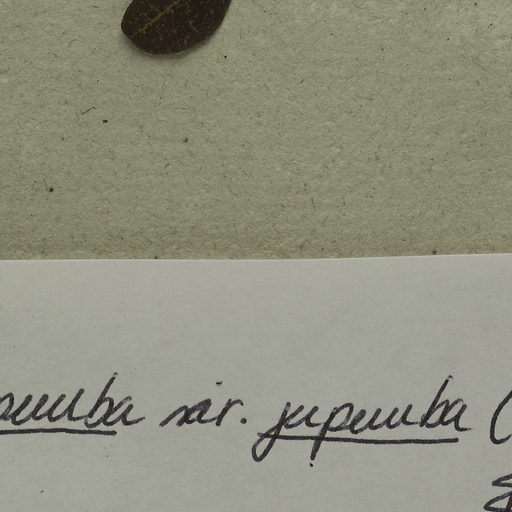 pumba var. jupumba (